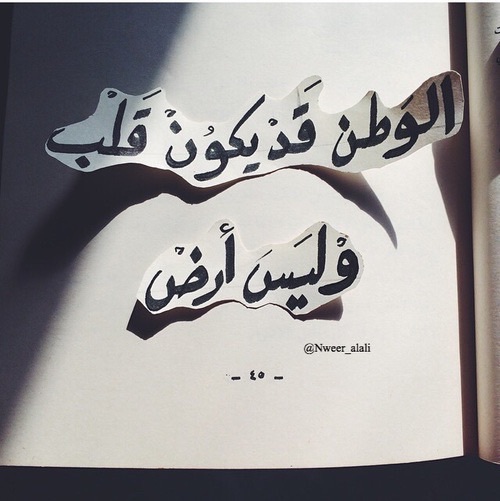 الوَطن قَدْ يكوُنْ قَلْب
وْليَسَ أرضْ
@Nweer_alali
- ٤٥ -